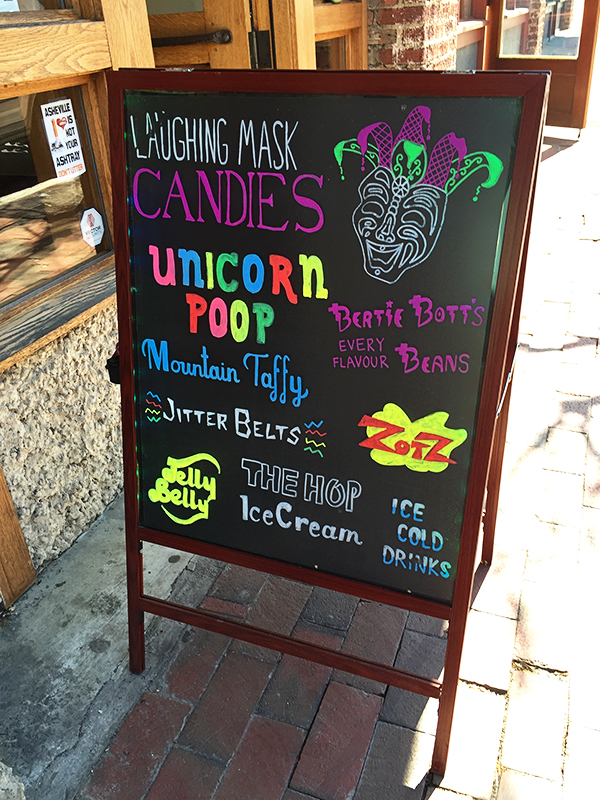 ASHEVILLE
I IS
NOT
YOUR
ASHTRAY
DON'T LITTER
LAUGHING MASK
CANDIES
UNICORN
POOP
BERTIE BOTT'S
EVERY
FLAVOUR BEANS
Mountain Taffy
JITTER BELTS
ZOTZ
Jelly
Belly
THE HOP
IceCream
ICE
COLD
DRINKS